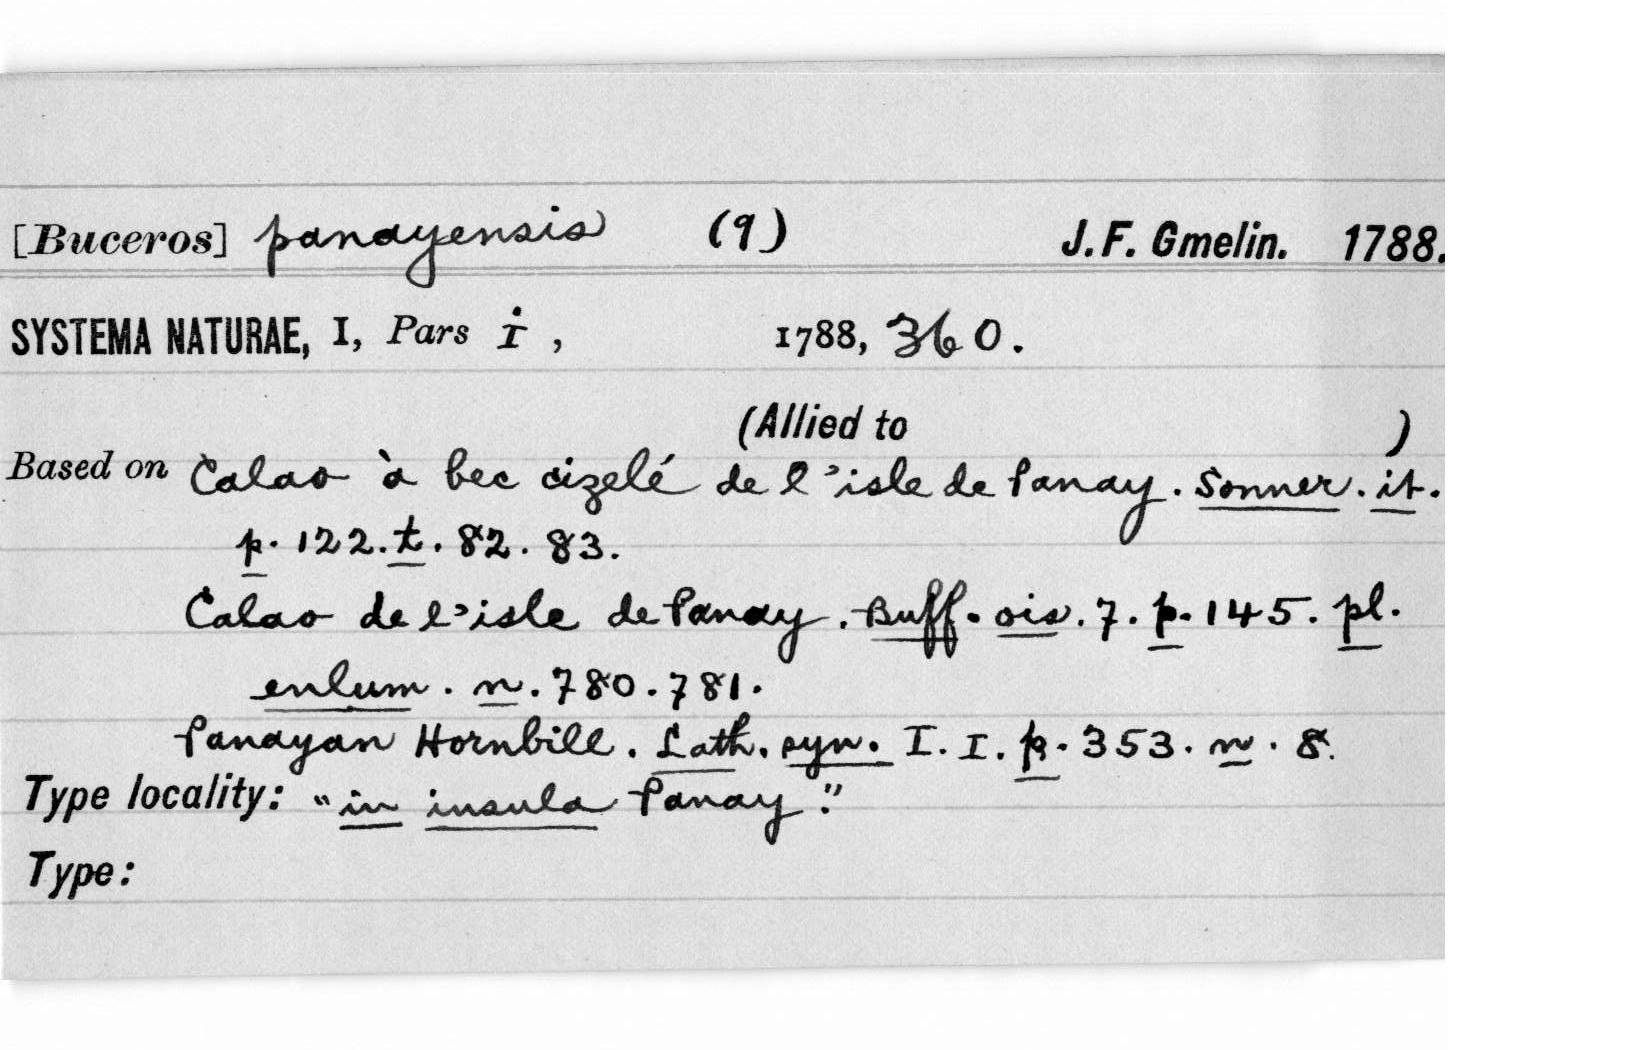 [Buceros] panayensis (9) J.F. Gmelin. 1788.
SYSTEMA NATURAE, I, Pars i, 1788, 360.
(Allied to )
Based on Calao à bec cizelé de l'isle de Panay. Sonner. it.
p. 122. t. 82. 83.
Calao de l'isle de Panay. Buff. ois. 7. p. 145. pl.
enlum. n. 780. 781.
Panayan Hornbill. Lath. syn. I. I. p. 353. n. 8.
Type locality: "in insula Panay."
Type: